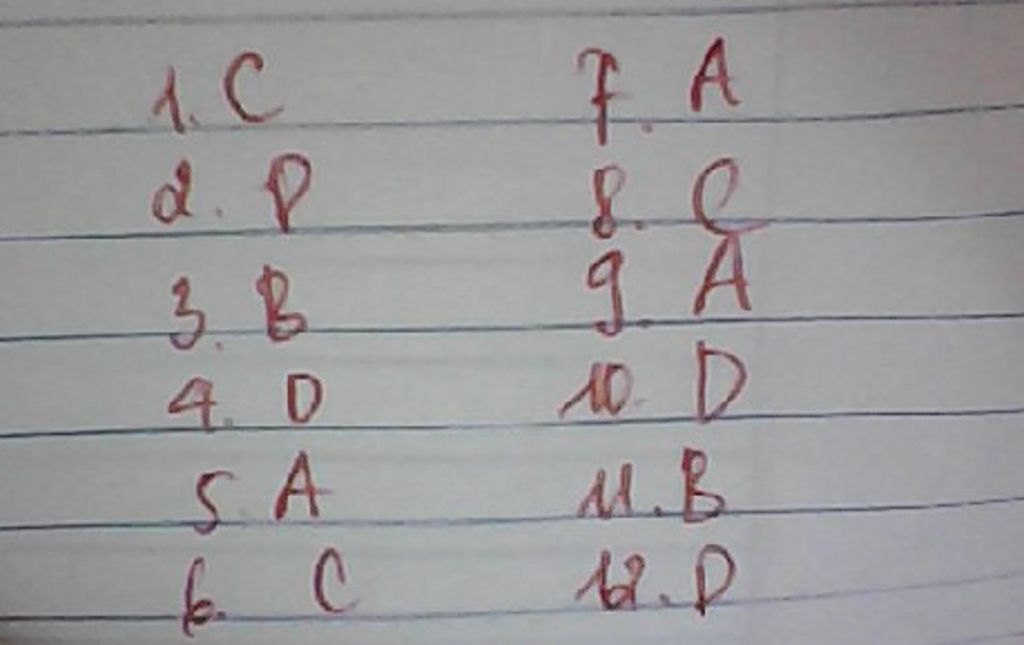 1. C
2. D
3. B
4. D
5. A
6. C
7. A
8. C
9. A
10. D
11. B
12. D